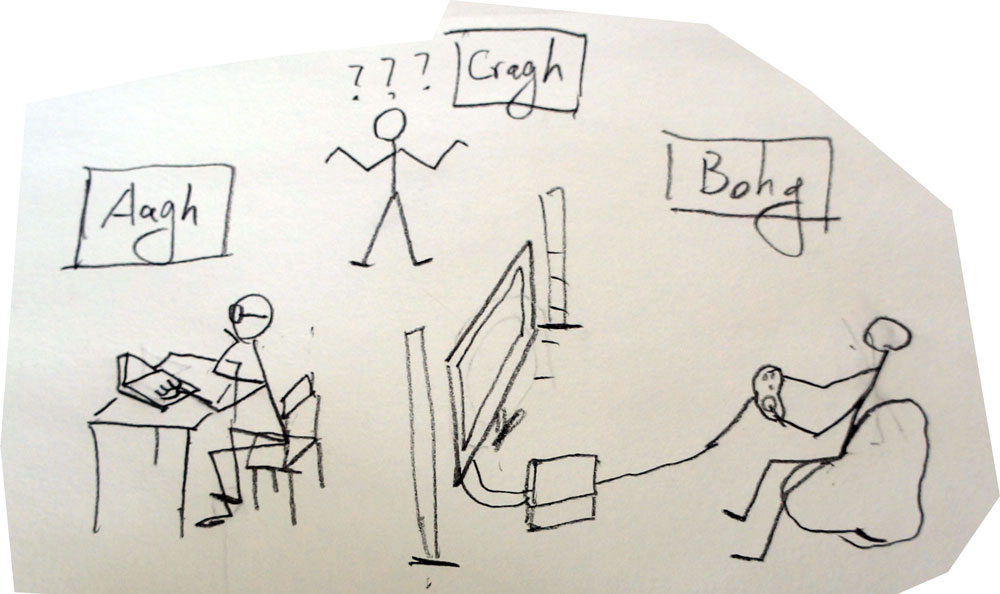 ? ? ? Cragh
Aagh
Bohg